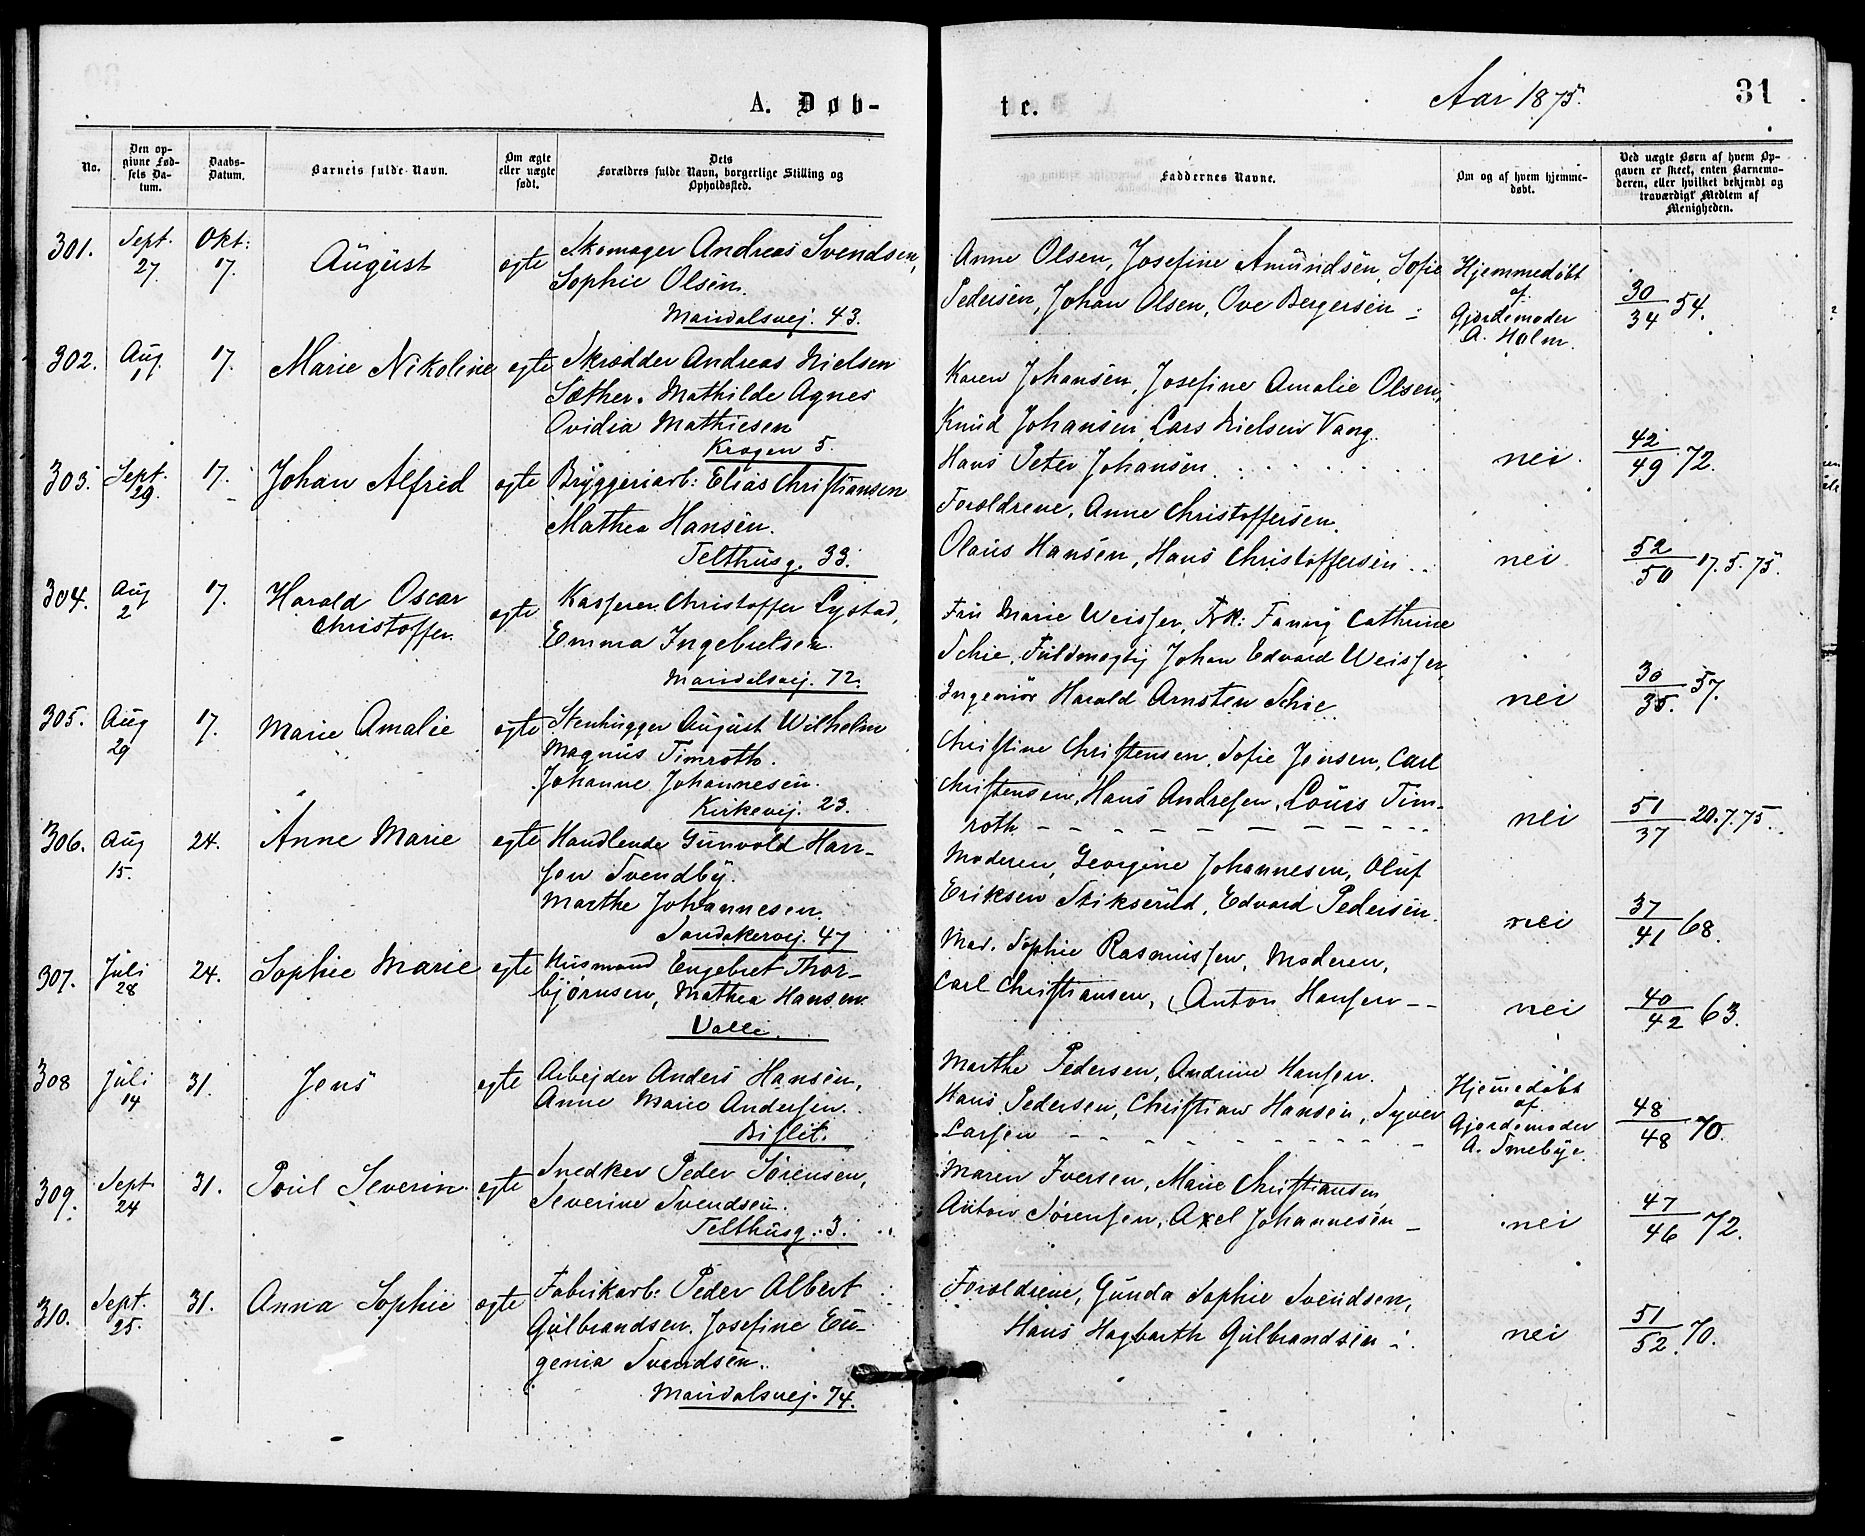 A. Døb-
te.
Aar 1875.
31
No.
Den op-
givne Fød-
sels Da-
tum.
Daabs-
Datum.
Barnets fulde Navn.
Om ægte
eller uægte
født.
Dets
Forældres fulde Navn, borgerlige Stilling og
Opholdssted.
Faddernes Navne.
Om og af hvem hjemme-
døbt.
Ved uægte Børn af hvem Op-
gaven er skeet, enten Barnemo-
deren, eller hvilket bekjendt og
troværdigt Medlem af
Menigheden.
301. Sept. 27. Okt: 17. August ægte Skomager Andreas Svendsen,
Sophie Olsen.
Maridalsvej. 43.
Anne Olsen, Josefine Amundsen, Sofie
Pedersen, Johan Olsen, Ove Bergersen
Hjemmedøbt
af
Gjordemoder
A. Holm.
30/34 54.
302. Aug. 1. 17. Marie Nikoline ægte Skrædder Andreas Nielsen
Sæther. Mathilde Agnes
Ovidia Mathiesen
Krogen 5.
Karen Johansen, Josefine Amalie Olsen,
Knud Johansen, Lars Nielsen Vang.
Hans Peter Johansen
nei.
42/49 72.
303. Sept. 29. 17. Johan Alfred ægte Bryggeriarb: Elias Christiansen
Mathea Hansen.
Telthusg. 33.
Forældrene. Anne Christoffersen.
Olaus Hansen, Hans Christoffersen
nei
52/50 17.5.75.
304. Aug 2 17. Harald Oscar
Christoffer.
ægte Kasserer. Christoffer Lystad,
Emma Ingebretsen.
Maridalsvej. 72.
Fru Marie Weisser, Frk: Fanny Cathrine
Schie, Fuldmægtig Johan Edvard Weisser,
Ingeniør Harald Arnsten Schie
nei
30/35. 57.
305. Aug 29 17. Marie Amalie ægte Stenhugger August Wilhelm
Magnus Timroth.
Johanne Johannesen.
Kirkevej. 23.
Christine Christensen, Sofie Jensen, Carl
Christensen, Hans Andresen, Louis Tim-
roth
nei
51/37 20.7.75.
306. Aug 15. 24. Anne Marie ægte Handlende Gunvold Han-
sen Svendby.
Marthe Johannesen.
Sandakervej. 47
Moderen, Georgine Johannesen, Oluf
Eriksen Stikserud, Edvard Pedersen.
nei
37/41 68.
307. Juli 28 24. Sophie Marie ægte Husmand Engebret Thor-
bjørnsen, Mathea Hansen.
Valle.
Mad. Sophie Rasmussen, Moderen,
Carl Christiansen, Anton Hansen
nei
40/42 63.
308 Juli 14 31. Jens ægte Arbejder Anders Hansen,
Anne Marie Andersen.
Bislet.
Marthe Pedersen, Andrine Hansen.
Hans Pedersen, Christian Hansen, Syver
Larsen
Hjemmedøbt
af
Gjordemoder
A. Smebye.
48/48 70.
309. Sept 24 31. Poul Severin. ægte Snedker Peder Sørensen,
Severine Svendsen.
Telthusg. 3.
Maren Iversen, Marie Christiansen
Anton Sørensen, Axel Johannesen
nei
47/46 72.
310. Sept. 25. 31. Anna Sophie ægte Fabrikarb: Peder Albert
Gulbrandsen. Josefine Eu-
genia Svendsen.
Maridalsvej. 74.
Forældrene, Gunda Sophie Svendsen,
Hans Hagbarth Gulbrandsen
nei
51/52. 70.